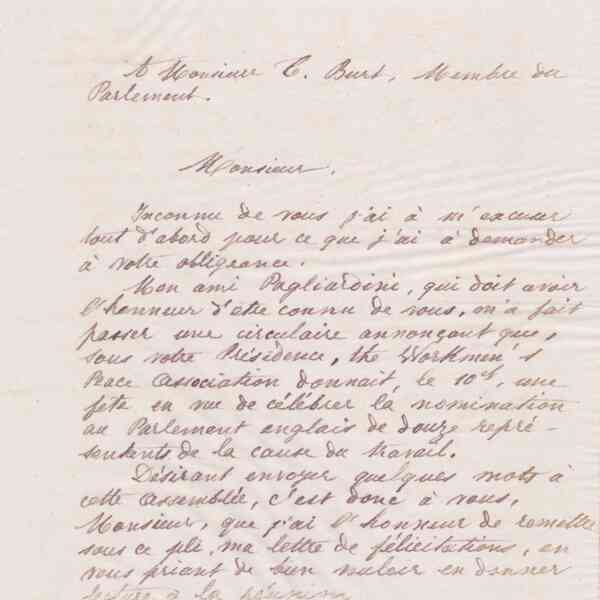 A Monsieur T. Burt, Membre du
Parlement.
Monsieur,
Inconnu de vous j'ai à m'excuser
tout d'abord pour ce que j'ai à demander
à votre obligeance.
Mon ami Pagliardini, qui doit avoir
l'honneur d'être connu de vous, m'a fait
passer une circulaire annonçant que,
sous votre Présidence, the Workmen's
Peace Association donnait, le 10 ct, une
fête en vue de célébrer la nomination
au Parlement anglais de douze repré-
sentants de la cause du travail.
Désirant envoyer quelques mots à
cette assemblée, c'est donc à vous,
Monsieur, que j'ai l'honneur de remettre
sous ce pli, ma lettre de félicitations, en
vous priant de bien vouloir en donner
lecture à la réunion